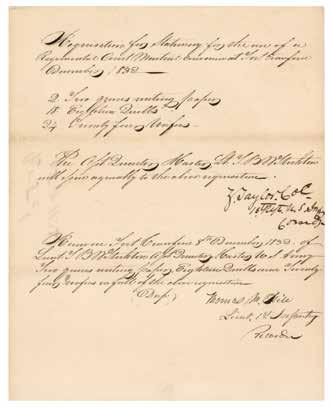 Requisition for Stationery for the use of a
Regimental Court Martial convened at Fort Crawford
December, 1832
2 Two quires writing paper
18 Eighteen Quills
24 Twenty four Wafers
The Asst Quarter Master Lt.
will issue agreeably to the above requisition.
Z. Taylor, Col
1st Regt U.S. Infy
Comdg
Fort Crawford 8th December 1832. of
Lieut. Asst Quarter Master U.S. Army
Two quires writing paper, Eighteen Quills and Twenty
four wafers in full of the above requisition
(Dup.)
Thomas M. Hill
Lieut. 1st Infantry
Recorder